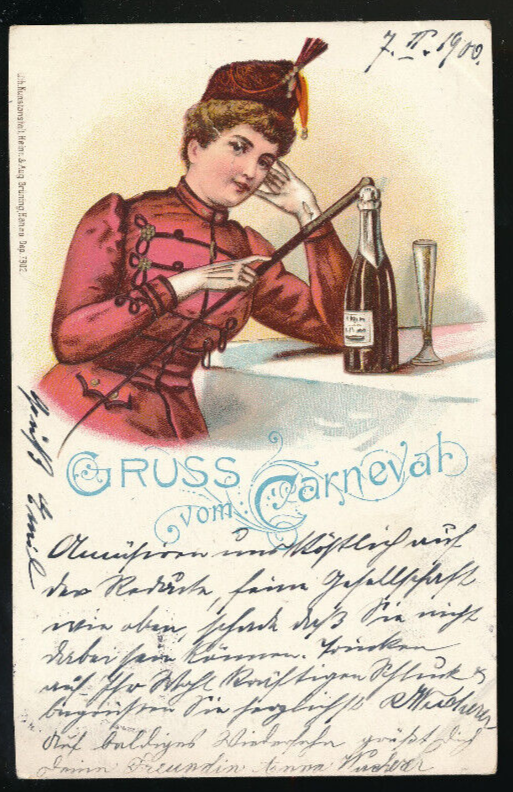 7. II. 1900.
Lith. Kunstanstalt Heinr. & Aug. Brüning, Hanau Dep. 7902
GRUSS
vom Carneval
Amüsiren uns köstlich auf
der Redoute, feine Gesellschaft
wie oben, schade daß Sie nicht
dabei sein können. Trinken
auf Ihr Wohl kräftigen Schluck &
begrüssen Sie herzlichst
Auf baldiges Wiedersehn grüßt Dich
Deine Freundin Anna
Gruß Emil